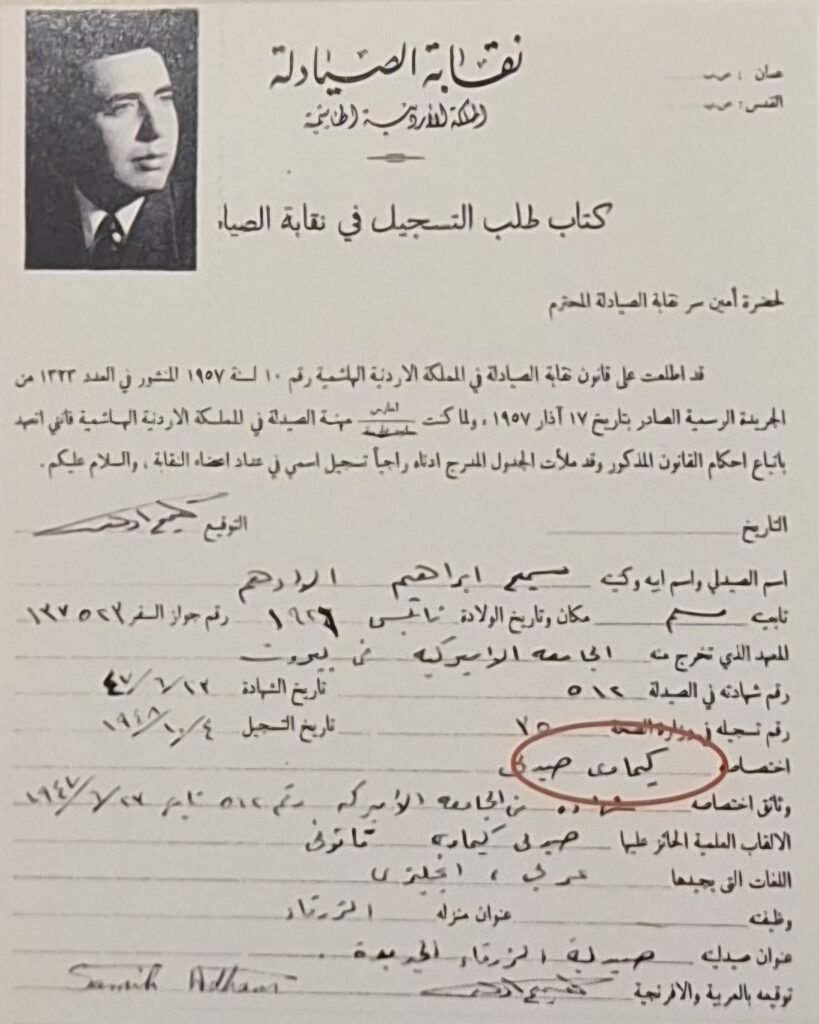 نقابة الصيادلة
المملكة الأردنية الهاشمية
عمان : ص.ب
القدس: ص.ب
كتاب طلب التسجيل في نقابة الصياد
لحضرة أمين سر نقابة الصيادلة المحترم
قد اطلعت على قانون نقابة الصيادلة في المملكة الاردنية الهاشمية رقم ١٠ لسنة ١٩٥٧ المنشور في العدد ١٣٢٣ من
الجريدة الرسمية الصادر بتاريخ ١٧ آذار ١٩٥٧ ، ولما كنت امارس مهنة الصيدلة في المملكة الاردنية الهاشمية فانني اتعهد
باتباع احكام القانون المذكور وقد ملأت الجدول المدرج ادناه راجياً تسجيل اسمي في عداد اعضاء النقابة ، والسلام عليكم .
التاريخ التوقيع
اسم الصيدلي واسم ابيه وكنيته سميح ابراهيم الادهم
تابعيته مسلم مكان وتاريخ الولادة نابلس ١٩٢٦ رقم جواز السفر ١٣٧٥٢٣
المعهد الذي تخرج منه الجامعه الاميركيه في بيروت
رقم شهادته في الصيدلة ٥١٢ تاريخ الشهادة ٢٣/٦/٤٧
رقم تسجيله في وزارة الصحة ٧٥ تاريخ التسجيل ٤/١٠/١٩٤٨
اختصاصه كيماوي صيدلي
وثائق اختصاصه شهاده من الجامعه الأميركيه رقم ٥١٢ تاريخ ٢٣/٦/١٩٤٧
الالقاب العلمية الحائز عليها صيدلي كيماوي قانوني
اللغات التي يجيدها عربي ، انجليزي
وظيفته عنوان منزله الزرقاء
عنوان صيدليته صيدلية الزرقاء الجديدة .
توقيعه بالعربية والافرنجية Samih Adham